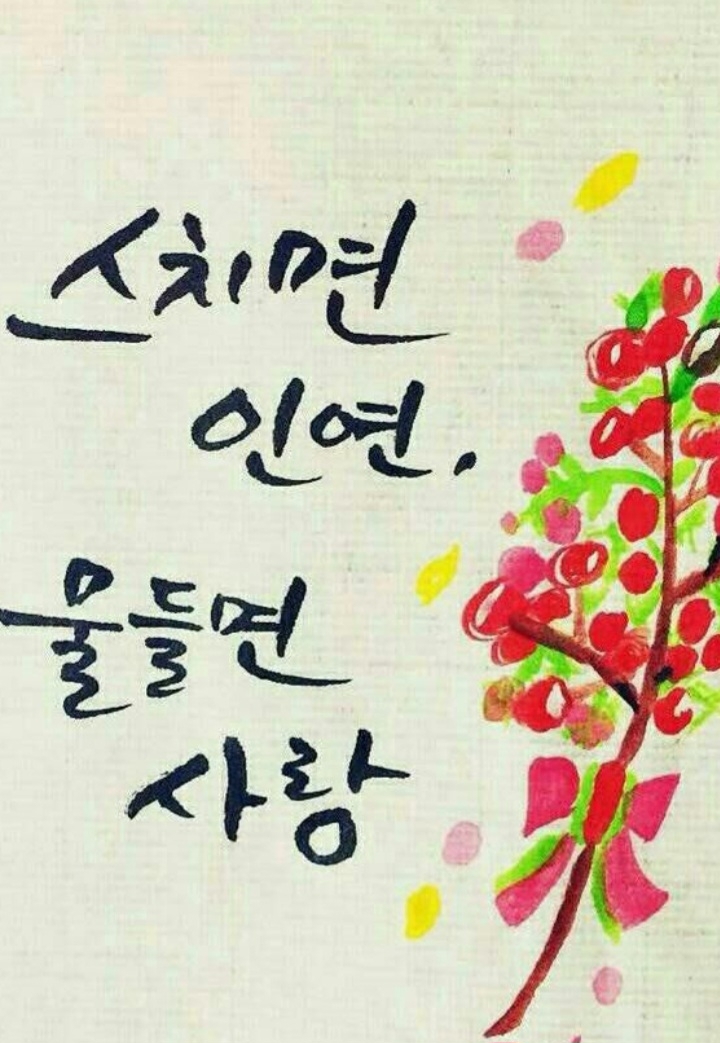 스치면
인연,
물들면
사랑